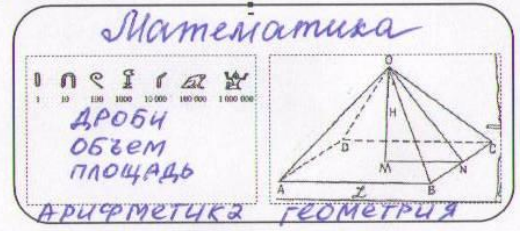 Математика
1 10 100 1000 10 000 100 000 1 000 000
ДРОБИ
ОБЪЕМ
ПЛОЩАДЬ
O
H
D
C
M
N
A
L
B
АРИФМЕТИКА ГЕОМЕТРИЯ